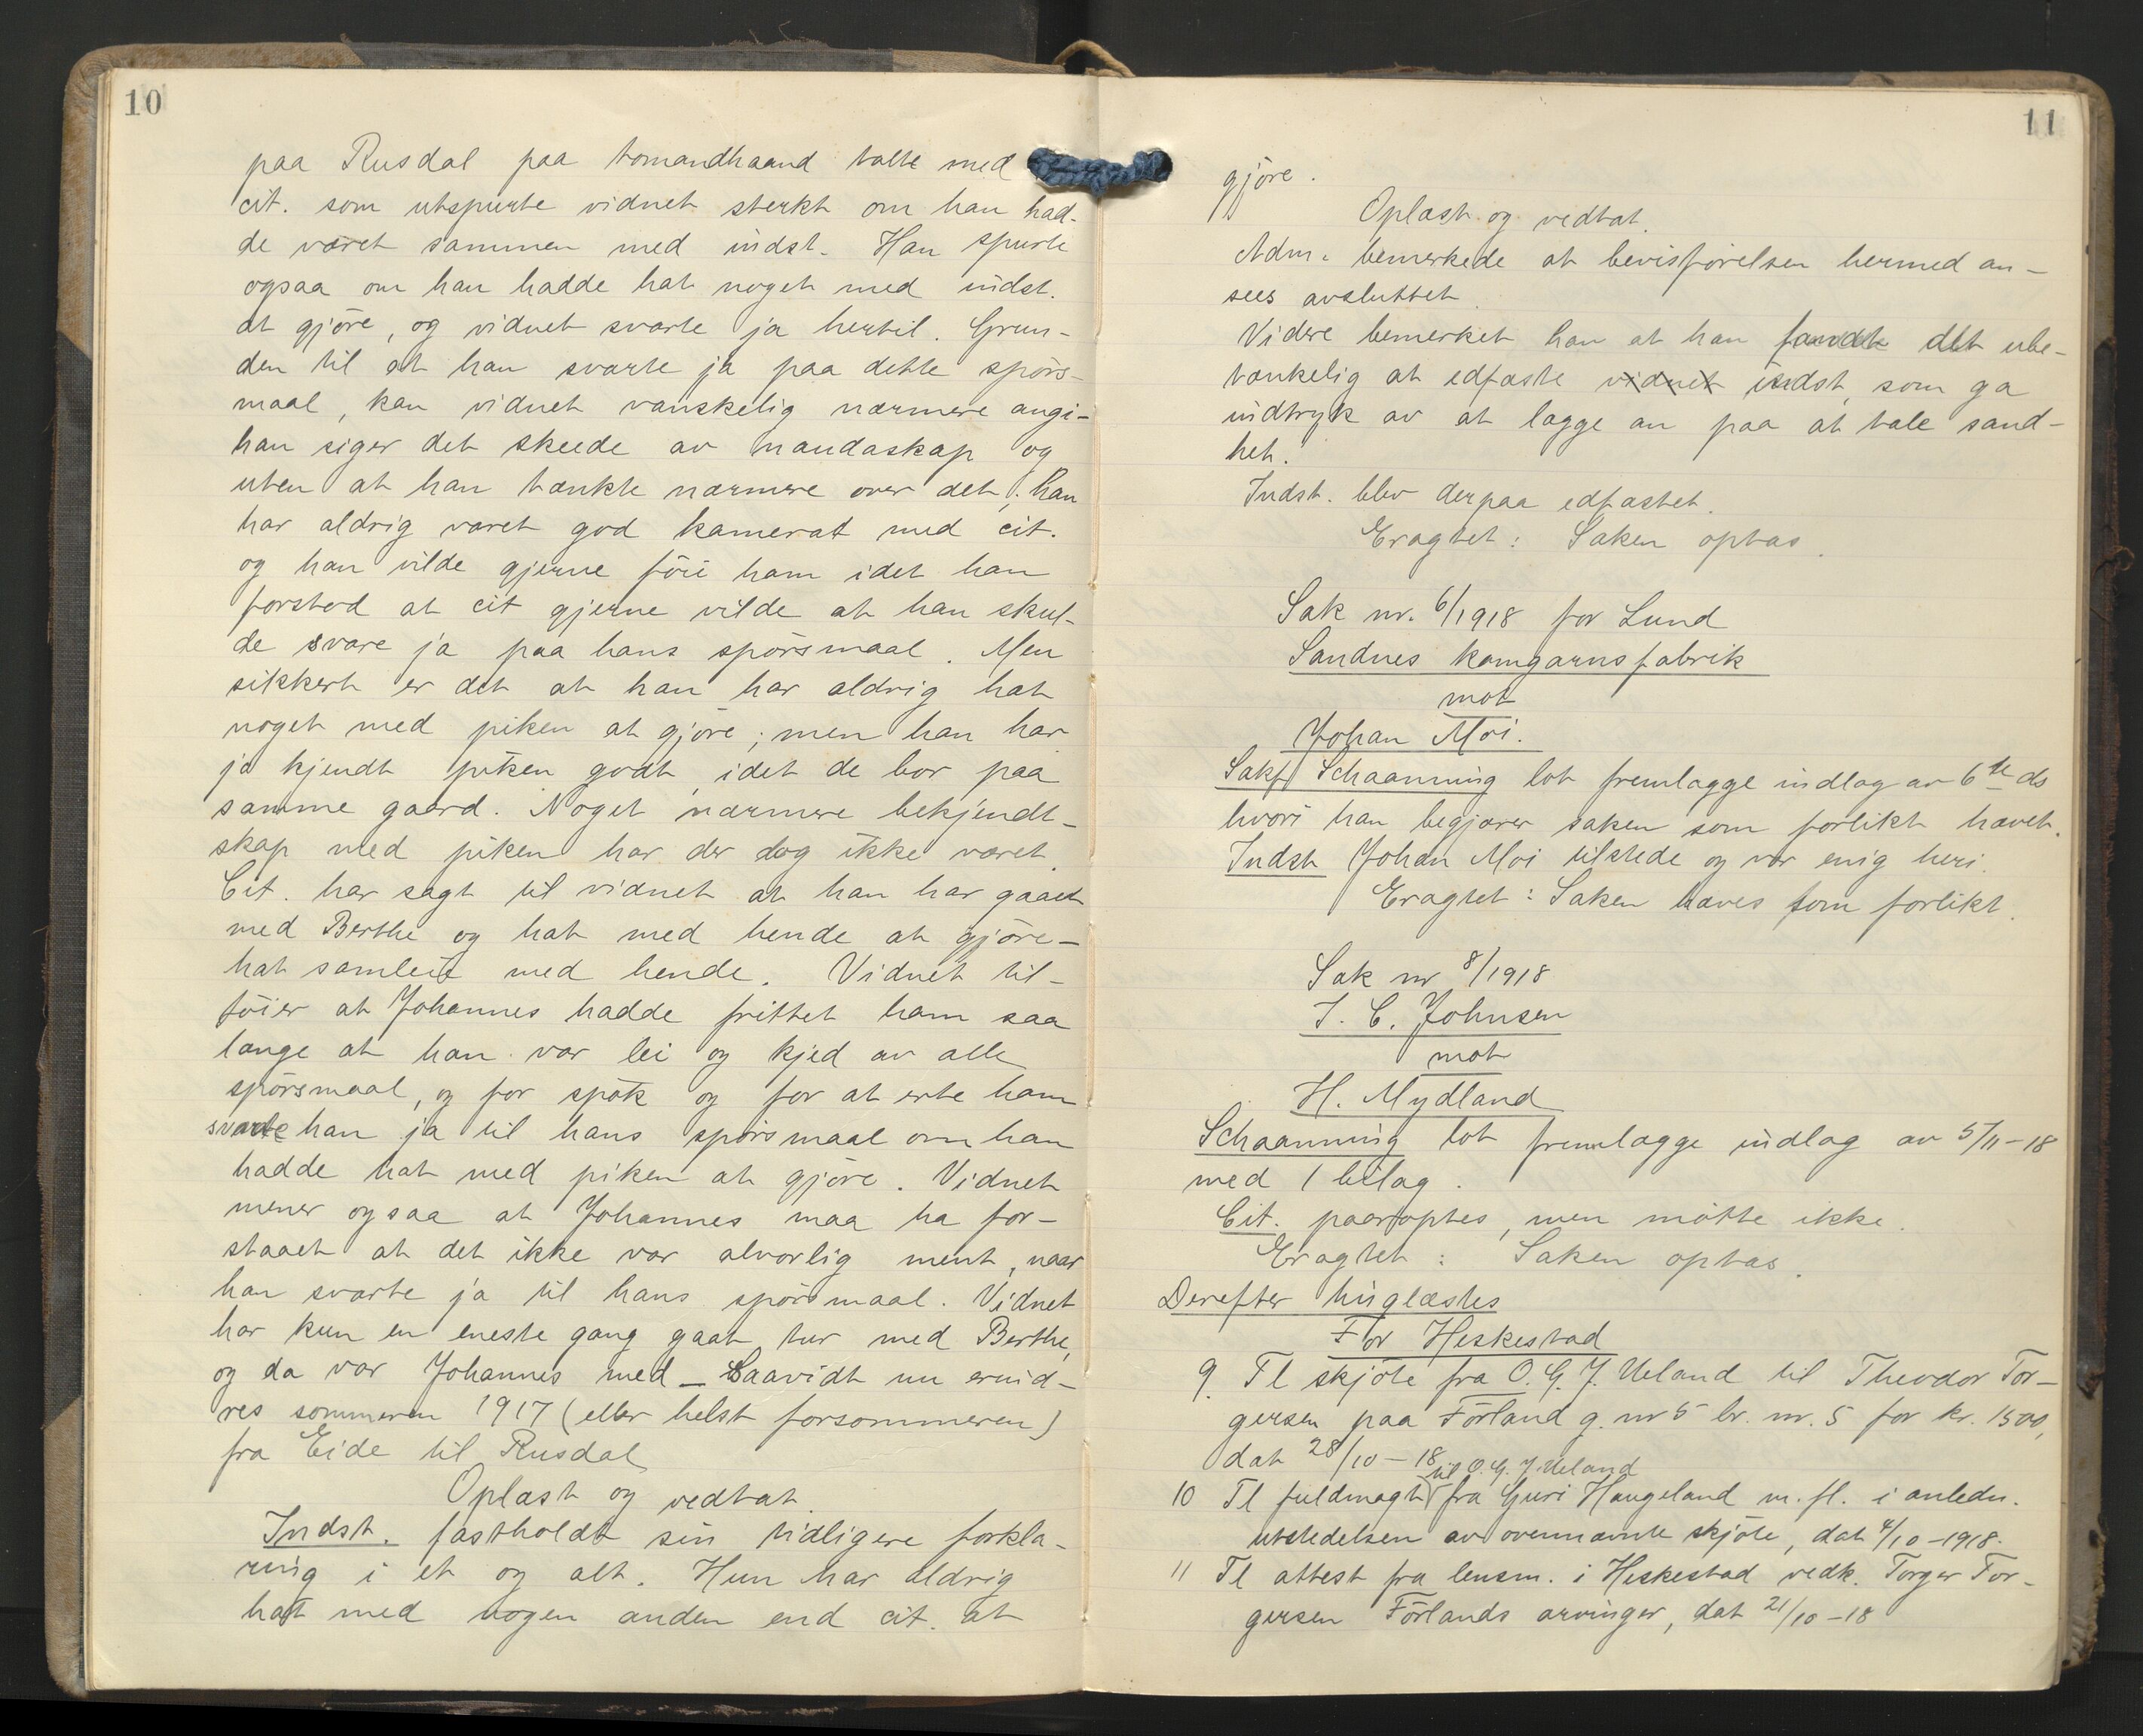 10
paa Rusdal paa tomandhaand talte med
cit. som utspurte vidnet sterkt om han had-
de været sammen med indst. Han spurte
ogsaa om han hadde hat noget med indst.
at gjöre, og vidnet svarte ja hertil. Grun-
den til at han svarte ja paa dette spörs-
maal, kan vidnet vanskelig nærmere angi-
han siger det skeede av naudaskap og
uten at han tænkte nærmere over det; han
har aldrig været god kamerat med cit.
og han vilde gjerne föie ham idet han
forstod at cit gjerne vilde at han skul-
de svare ja paa hans spörsmaal. Men
sikkert er det at han har aldrig hat
noget med piken at gjöre; men han har
jo kjendt piken godt, idet de bor paa
samme gaard. Noget nærmere bekjendt-
skap med piken har der dog ikke været.
Cit. har sagt til vidnet at han har gaaet
med Berthe og hat med hende at gjöre-
hat samleie med hende. Vidnet til-
föier at Johannes hadde frittet ham saa
længe at han var lei og kjed av alle
spörsmaal, og for spök og for at erte ham
svarte han ja til hans spörsmaal om han
hadde hat med piken at gjöre. Vidnet
mener ogsaa at Johannes maa ha for-
staaet at det ikke var alvorlig ment, naar
han svarte ja til hans spörsmaal. Vidnet
har kun en eneste gang gaat tur med Berthe,
og da var Johannes med _ Saavidt nu erind-
res sommeren 1917 (eller helst forsommeren)
fra Eide til Rusdal
Oplæst og vedtat.
Indst. fastholdt sin tidligere forkla-
ring i et og alt. Hun har aldrig
hat med nogen anden end cit. at
11
gjöre.
Oplæst og vedtat.
Adm. bemerkede at bevisförelsen hermed an-
sees avsluttet.
Videre bemerket han at han fandt det ube-
tænkelig at edfæste vidnet indst, som ga
indtryk av at lægge an paa at tale sand-
het.
Indst. blev derpaa edfæstet.
Eragtet: Saken optas.
Sak nr. 6/1918 for Lund
Sandnes kamgarnsfabrik
mot
Johan Moi.
Sakf Schaanning lot fremlægge indlæg av 6te ds
hvori han begjærer saken som forlikt hævet.
Indst Johan Moi tilstede og var enig heri.
Eragtet: Saken hæves som forlikt.
Sak nr 8/1918
I. C. Johnsen
mot
H. Mydland
Schaanning lot fremlægge indlæg av 5/11-18
med 1 bilag.
Cit. paaroptes, men mötte ikke.
Eragtet: Saken optas.
Derefter tinglæstes
For Heskestad
9. Tl skjöte fra O. G. J. Ueland til Theodor Tor-
gersen paa Förland g. nr 5 br. nr. 5 for kr. 1500,
dat 28/10-18
til O. G. J. Ueland
10 Tl fuldmagt fra Guri Haugeland m. fl. i anledn.
utstedelsen av ovennævnte skjöte, dat 4/10-1918.
11 Tl attest fra lensm. i Heskestad vedk. Torger Tor-
gersen Förlands arvinger, dat 21/10-18